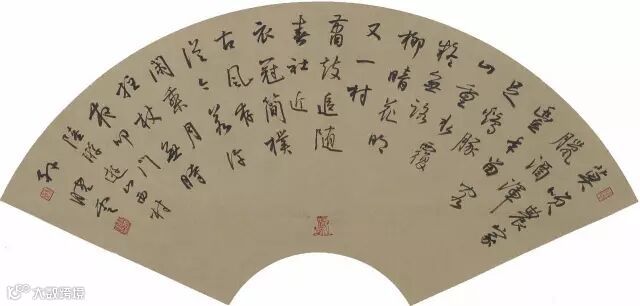 莫笑農家
臘酒渾
豐年留客
足鷄豚
山重水覆
疑無路
柳暗花明
又一村
簫鼓追随
春社近
衣冠簡樸
古風存
從今若許
閑乘月
拄杖無時
夜叩門
陸游遊山西村
孫曉雲
大数跨境